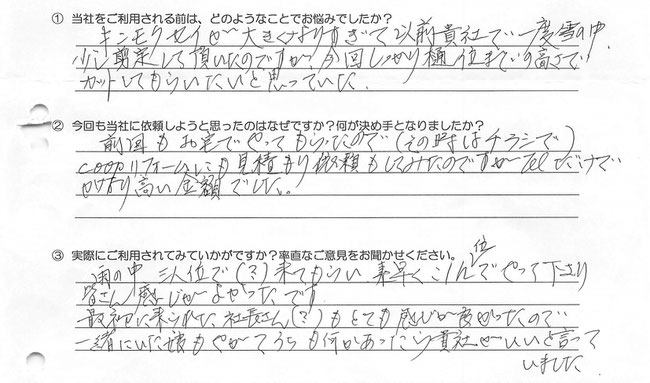 ① 当社をご利用される前は、どのようなことでお悩みでしたか？
キンモクセイが大きくなりすぎて以前貴社で一度雪の中、
少し剪定して頂いたのですが、今回しっかり樋位までの高さで
カットしてもらいたいと思っていた。
② 今回も当社に依頼しようと思ったのはなぜですか？何が決め手となりましたか？
前回もお宅でやってもらったので（その時はチラシで）
COOPリフォームにも見積もり依頼もしてみたのですが Telだけで
かなり高い金額でした。
③ 実際にご利用されてみていかがですか？率直なご意見をお聞かせください。
雨の中 三人位で（？）来てもらい 素早く やって下さり
位
皆さん感じがよかったです
最初に来られた社長さん（？）もとても感じが良かったので
一緒にいた娘もやがてうちも何かあったら貴社がいいと言って
いました